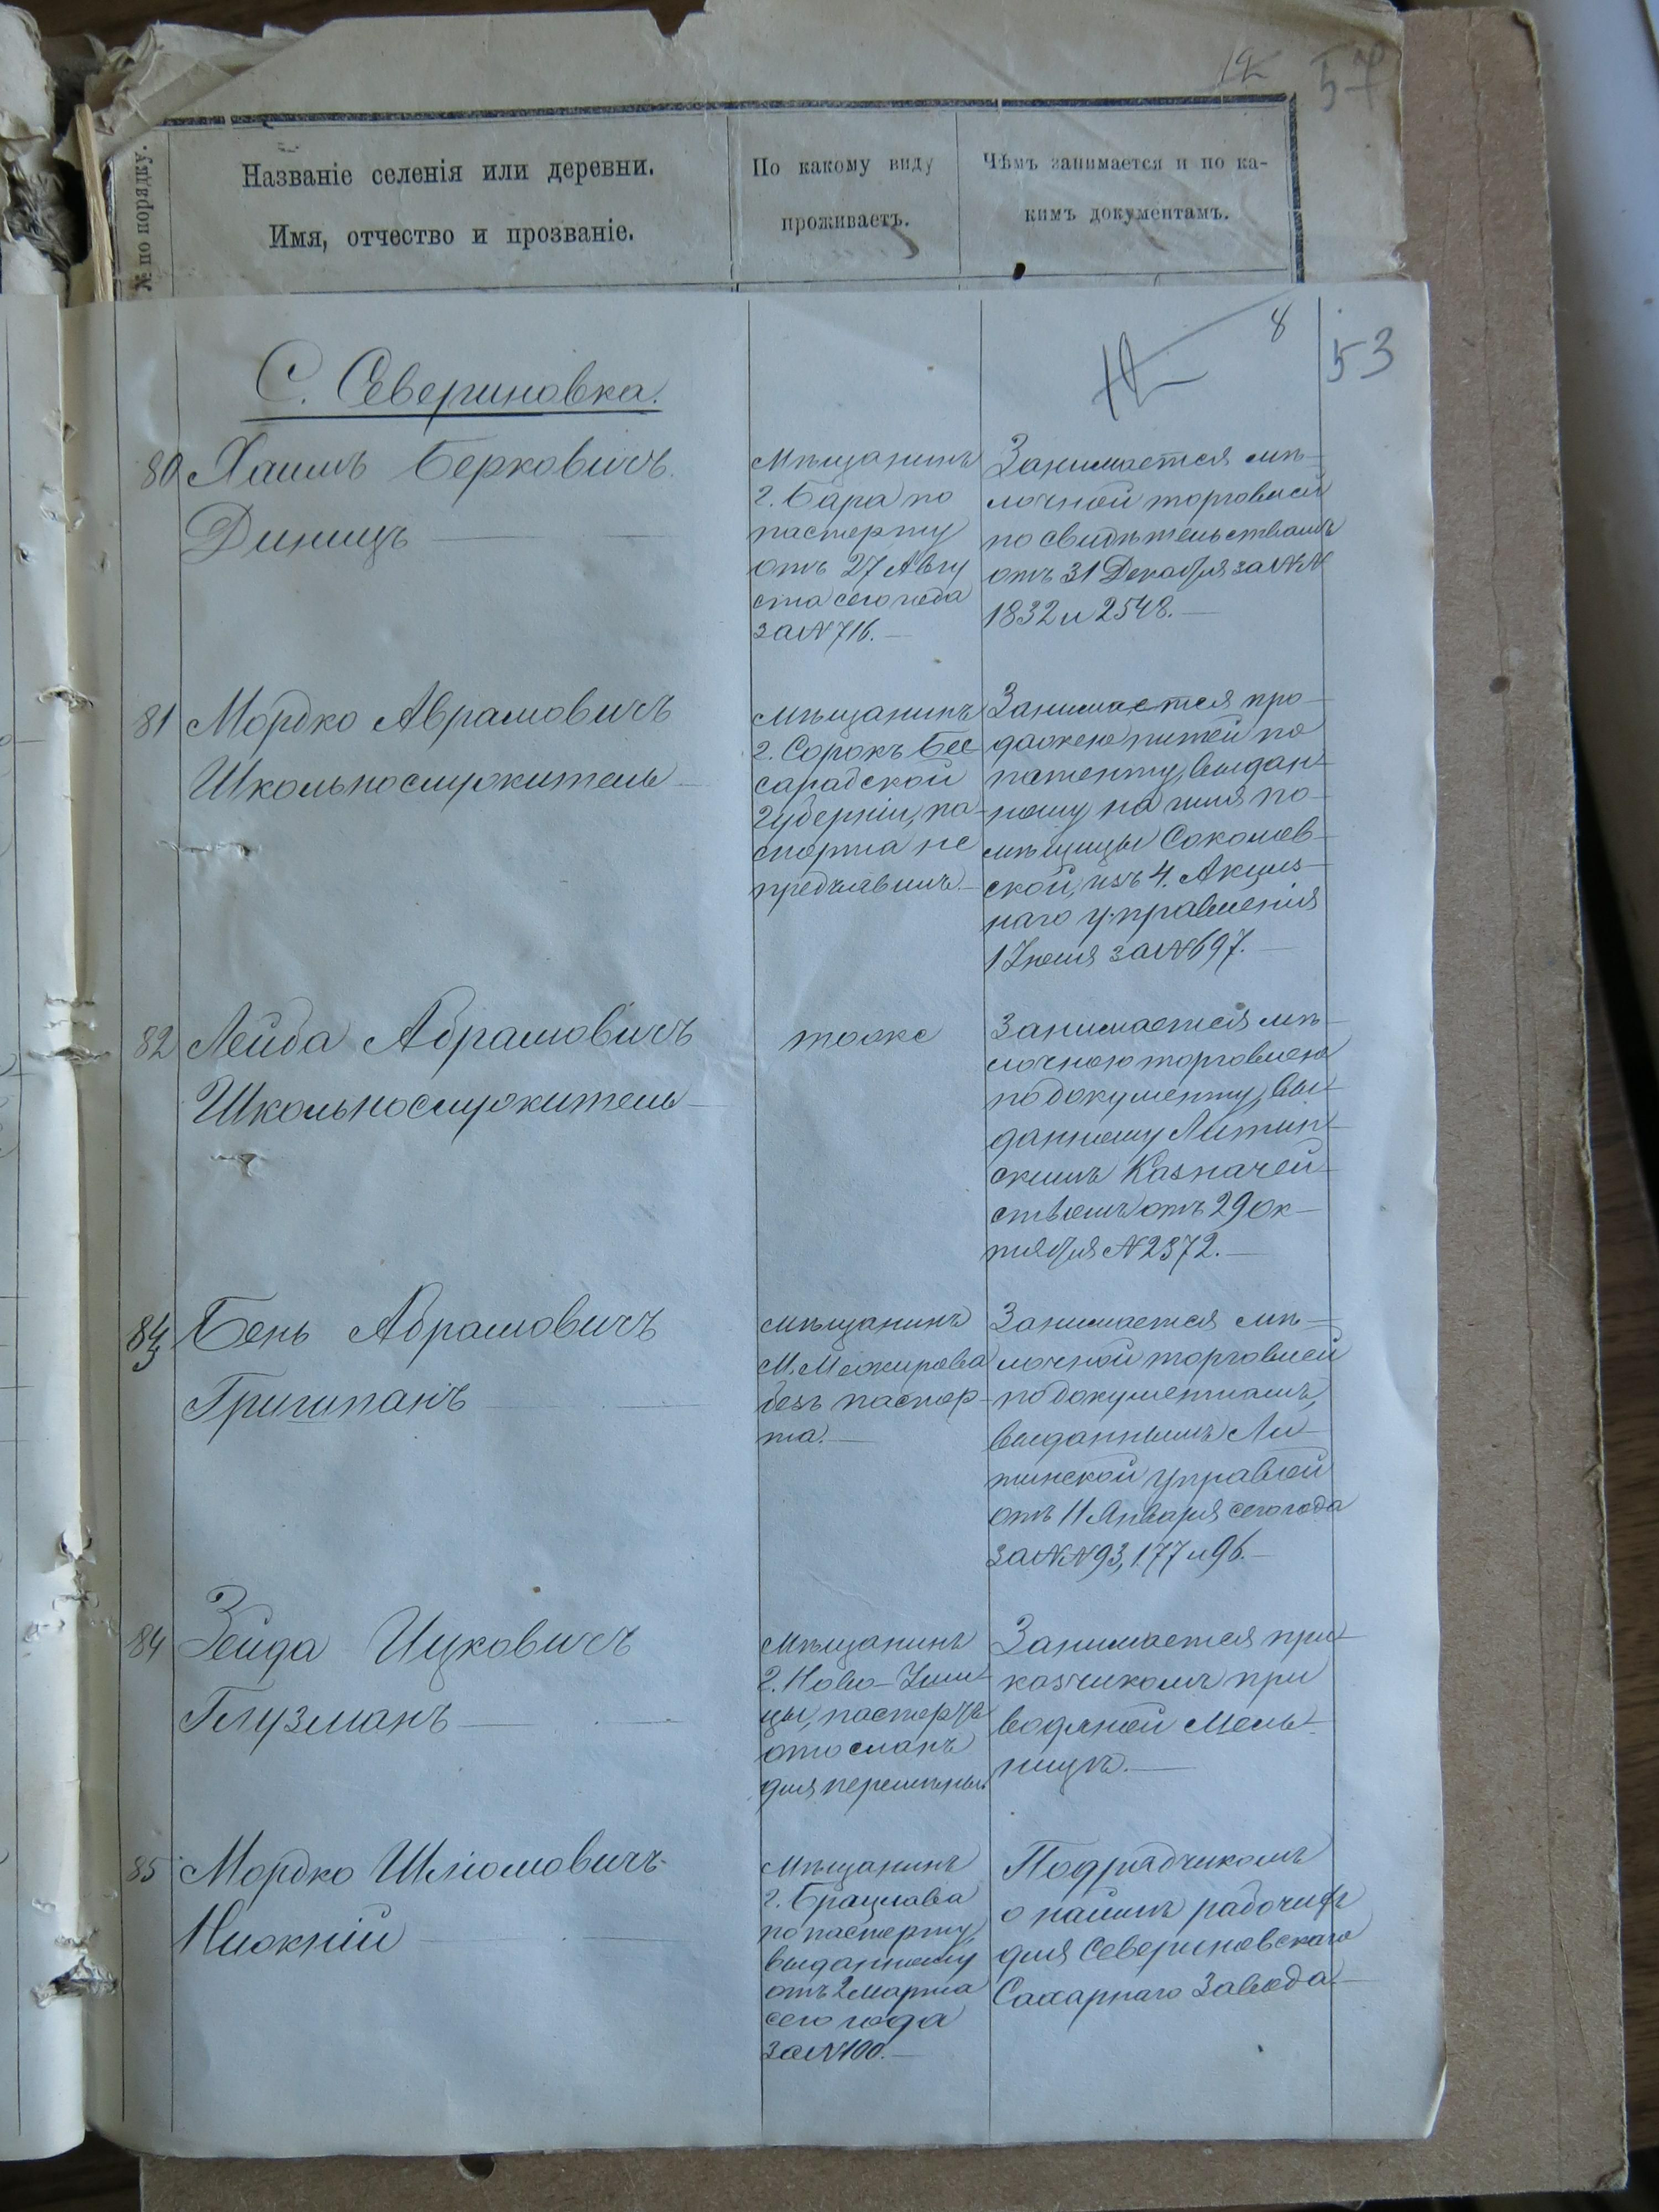 12
57
№ по порядку.
Названіе селенія или деревни.
Имя, отчество и прозваніе.
По какому виду
проживаетъ.
Чѣмъ занимается и по ка-
кимъ документамъ.
8
53
С. Севериновка.
80 Хаимъ Берковичъ
Диницъ —
Мѣщанинъ
г. Бара по
паспорту
отъ 27 Авгу
ста сего года
за N 716. —
Занимается мѣ-
лочной торговлей
по свидѣтельствамъ
отъ 31 Декабря за NN
1832 и 2548. —
81 Мордко Аврамовичъ
Школьнослужитель —
мѣщанинъ
г. Сорокъ Бес
сарабской
губерніи, па-
спорта не
предъявилъ. —
Занимается про-
дажею питей по
патенту, выдан-
ному на имя по-
мѣщицы Соколов-
ской, изъ 4. Акциз-
наго управленія
1 Іюля за N 697. —
82 Лейба Абрамовичъ
Школьнослужитель —
тоже
Занимается мѣ-
лочною торговлею
по документу, вы-
данному Литин-
скимъ Казначей-
ствомъ отъ 29 ок-
тября N 2372. —
83 Бень Абрамовичъ
Григшпанъ —
мѣщанинъ
М. Межирова
безъ паспор-
та. —
Занимается мѣ-
лочной торговлей
по документамъ,
выданнымъ Ли-
тинской управой
отъ 11 Января сего года
за NN 93, 177 и 96. —
84 Зейда Ицковичъ
Глузманъ —
Мѣщанинъ
г. Ново-Уши-
цы, паспортъ
отосланъ
для перемѣны
Занимается при-
казчикомъ при
водяной мель-
ницѣ. —
85 Мордко Шліомовичъ
Нижній —
Мѣщанинъ
г. Брацлава
по паспорту,
выданному
отъ 2 Марта
сего года
за N 100. —
Подрядчикомъ
о наймѣ рабочихъ
для Севериновскаго
Сахарнаго Завода. —